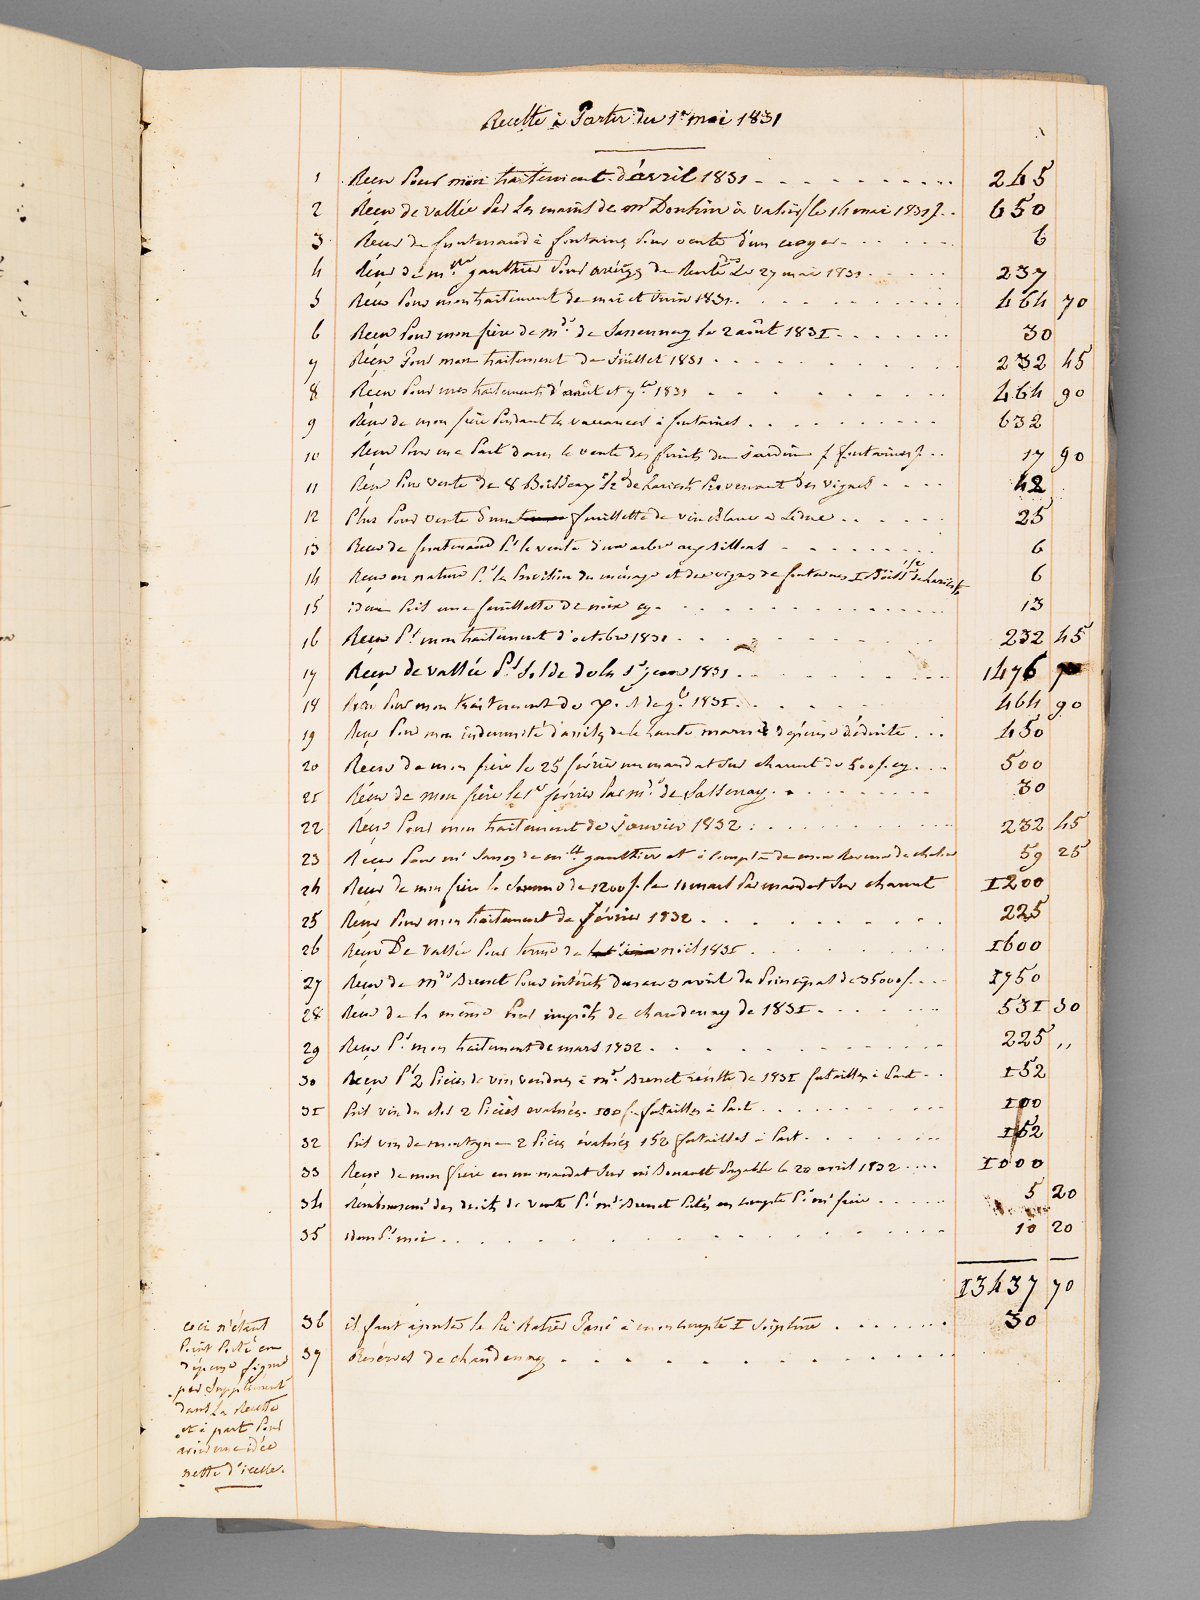 Recette à Partir du 1er mai 1831
1 Reçu Pour mon traitement d'avril 1831 - - - 265
2 Reçu de vallée Par Les mains de mr à valoir (le 14 mai 1831) . . 650
3 Reçu de à fontaines Pour vente d'un noyer - - - 6
4 Reçu de m. gauthier Pour de Rente Le 27 mai 1831 - - - 237
5 Reçu Pour mon traitement de mai et Juin 1831 - - - 464 70
6 Reçu Pour mon frère de md. de Sassenay le 2 août 1831 - - - 30
7 Reçu Pour mon traitement de Juillet 1831 - - - 232 45
8 Reçu Pour mes traitements d'août et 7bre 1831 - - - 464 90
9 Reçu de mon frère Pendant les vaccances à fontaines - - - 632
10 Reçu Pour ma Part dans la vente des fruits du Jardin (fontaines) . . 17 90
11 Reçu Pour vente de 8 1/2 de haricots Provenant des vignes - - - 42
12 Plus Pour vente d'une feuillette de vin Blanc à - - - 25
13 Reçu de Pr la vente d'un arbre - - - 6
14 Reçu en nature Pr la Provision du ménage et des vignes de fontaines 1 1/2 de haricots 6
15 idem Prit une feuillette de - - - 13
16 Reçu Pr mon traitement d'octobre 1831 - - - 232 45
17 Reçu de vallée Pr Solde de la St jean 1831 - - - 1476
18 Reçu Pour mon traitement de 1831 - - - 464 90
19 Reçu Pour mon indemnité d'assises de la haute marne dépense déduite . . . 450
20 Reçu de mon frère le 25 février un mandat sur charvet de 500 f. cy . . . 500
21 Reçu de mon frère le 1er février Par md. de Sassenay - - - 30
22 Reçu Pour mon traitement de Janvier 1832 - - - 232 45
23 Reçu Pour mr de mlle gauthier et à Compte de mon de 59 25
24 Reçu de mon frère la Somme de 1200 f. le 11 mars Par mandat sur charvet 1200
25 Reçu Pour mon traitement de février 1832 - - - 225
26 Reçu De vallée Pour terme de noël 1831 - - - 1600
27 Reçu de mde Brenet Pour intérêts du avril du Principal de 35000 f. . . . 1750
28 Reçu de la même Pour impôts de chaudenay de 1831 - - - 531 30
29 Reçu Pr mon traitement de mars 1832 - - - 225 ,,
30 Reçu Pr 2 Pièces de vin vendues à mr Brenet récolte de 1831 futailles à Part . . 152
31 Prit vin du clos 2 Pièces évaluées 100 f. futailles à Part - - - 100
32 Prit vin de montagne 2 Pièces évaluées 152 futailles à Part - - - 152
33 Reçu de mon frère en un mandat Sur mr Payable le 20 avril 1832 . . . . 1000
34 Rembourseme des droits de vente Pr mr Brenet Portés en compte Pr mr frère - - - 5 20
35 idem Pr moi - - - 10 20
13437 70
36 il faut ajouter le Passé à mon compte 1 - - - 30
37 Réserves de chaudenay - - -
ceci n'étant
Point Porté en
dépense figure
par Supplément
dans La Recette
et à part Pour
avoir une idée
nette d'icelle.